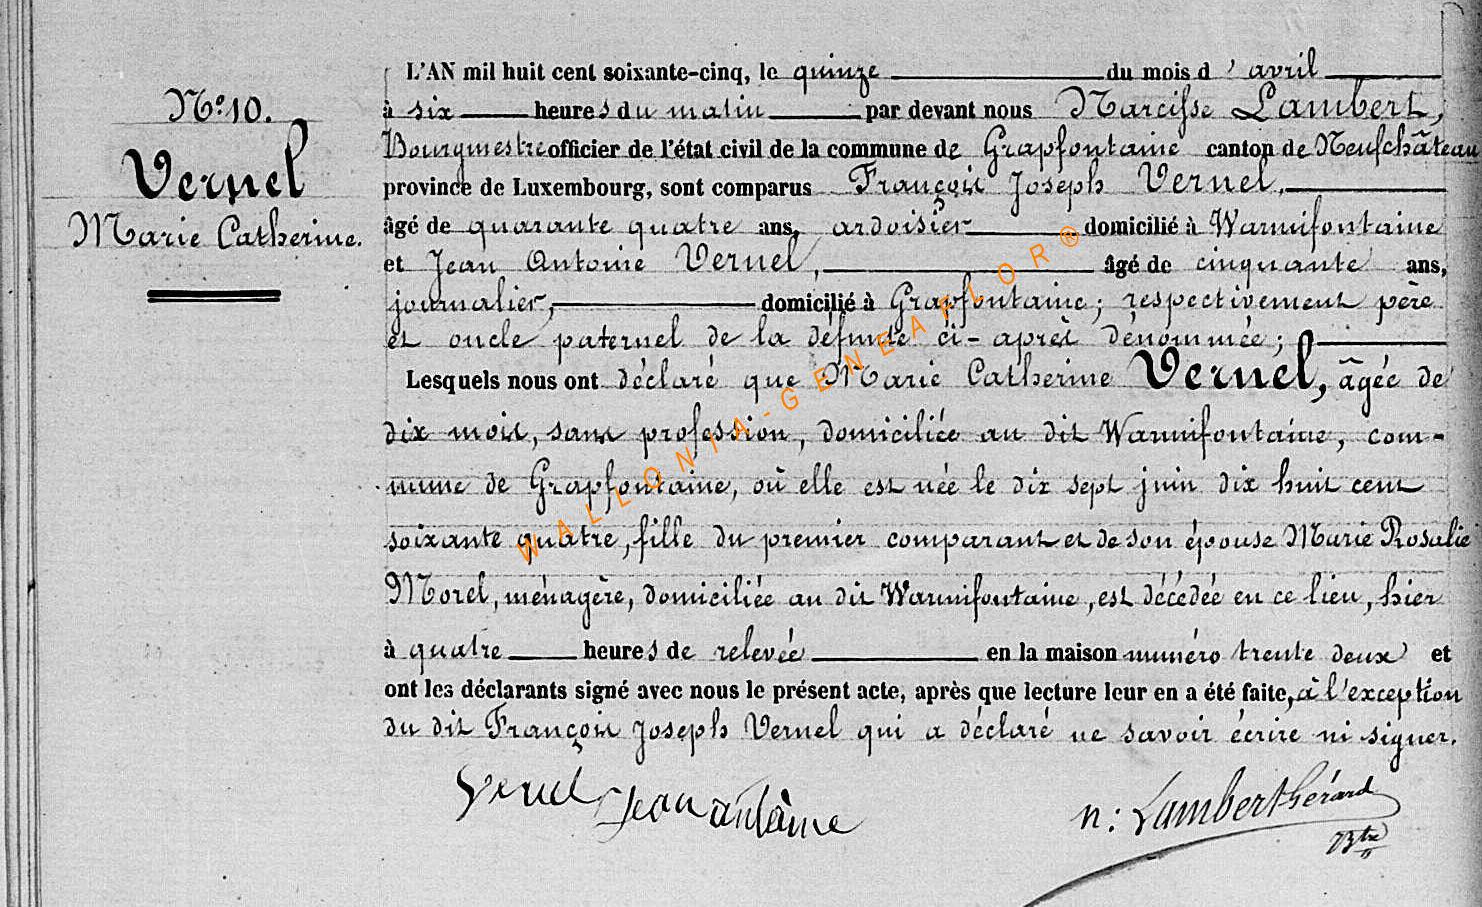 N° 10.
Vernel
Marie Catherine.
L'AN mil huit cent soixante-cinq, le quinze du mois d'avril
à six heures du matin par devant nous Narcisse Lambert,
Bourgmestre officier de l'état civil de la commune de Grapfontaine canton de Neufchâteau
province de Luxembourg, sont comparus François Joseph Vernel,
âgé de quarante quatre ans, ardoisier domicilié à Warmifontaine
et Jean Antoine Vernel, âgé de cinquante ans,
journalier, domicilié à Grapfontaine; respectivement père
et oncle paternel de la défunte ci-après dénommée;
Lesquels nous ont déclaré que Marie Catherine Vernel, âgée de
dix mois, sans profession, domiciliée au dit Warmifontaine, com-
mune de Grapfontaine, où elle est née le dix sept juin dix huit cent
soixante quatre, fille du premier comparant et de son épouse Marie Rosalie
Morel, ménagère, domiciliée au dit Warmifontaine, est décédée en ce lieu, hier
à quatre heures de relevée en la maison numéro trente deux et
ont les déclarants signé avec nous le présent acte, après que lecture leur en a été faite, à l'exception
du dit François Joseph Vernel qui a déclaré ne savoir écrire ni signer.
Vernel Jean antoine
n: Lambert hérard
Btre
WALLONIA-GENEAFLOR®